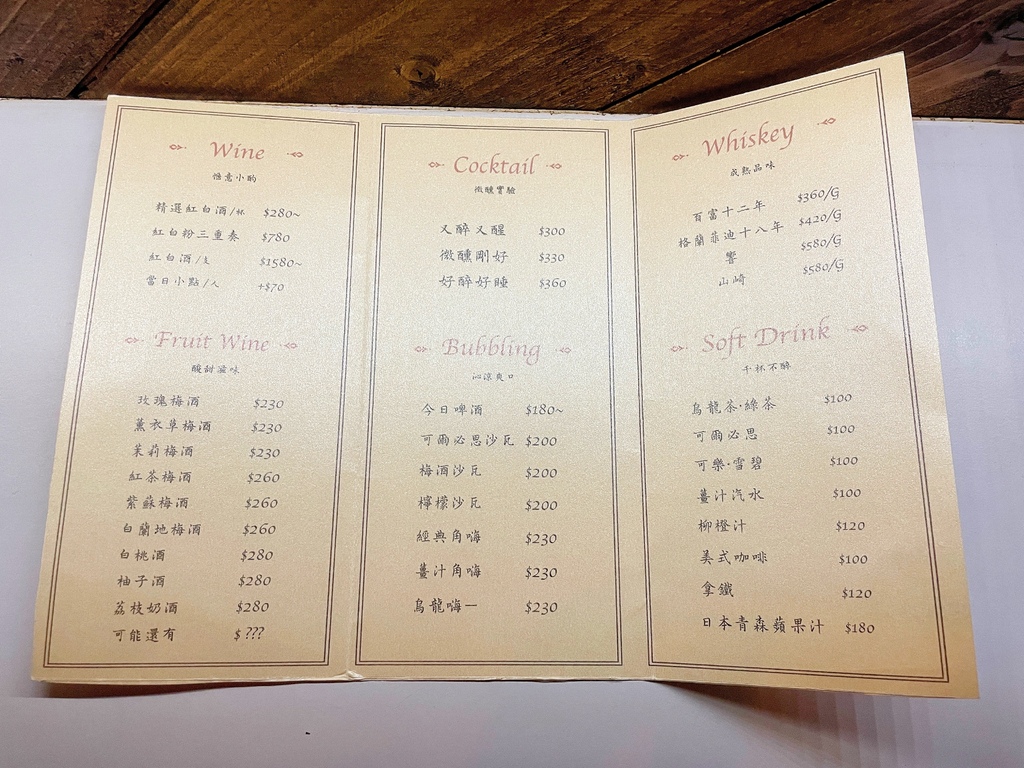 Wine
愜意小酌
精選紅白酒/杯 $280~
紅白粉三重奏 $780
紅白酒/支 $1580~
當日小點/人 +$70
Fruit Wine
酸甜滋味
玫瑰梅酒 $230
薰衣草梅酒 $230
茉莉梅酒 $230
紅茶梅酒 $260
紫蘇梅酒 $260
白蘭地梅酒 $260
白桃酒 $280
柚子酒 $280
荔枝奶酒 $280
可能還有 $ ???
Cocktail
微醺實驗
又醉又醒 $300
微醺剛好 $330
好醉好睡 $360
Bubbling
沁涼爽口
今日啤酒 $180~
可爾必思沙瓦 $200
梅酒沙瓦 $200
檸檬沙瓦 $200
經典角嗨 $230
薑汁角嗨 $230
烏龍嗨一 $230
Whiskey
成熟品味
百富十二年 $360/G
格蘭菲迪十八年 $420/G
響 $580/G
山崎 $580/G
Soft Drink
千杯不醉
烏龍茶·綠茶 $100
可爾必思 $100
可樂·雪碧 $100
薑汁汽水 $100
柳橙汁 $120
美式咖啡 $100
拿鐵 $120
日本青森蘋果汁 $180